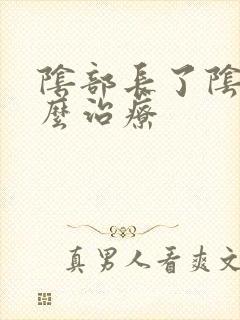 陰部長了陰
麼治療
真男人看爽文